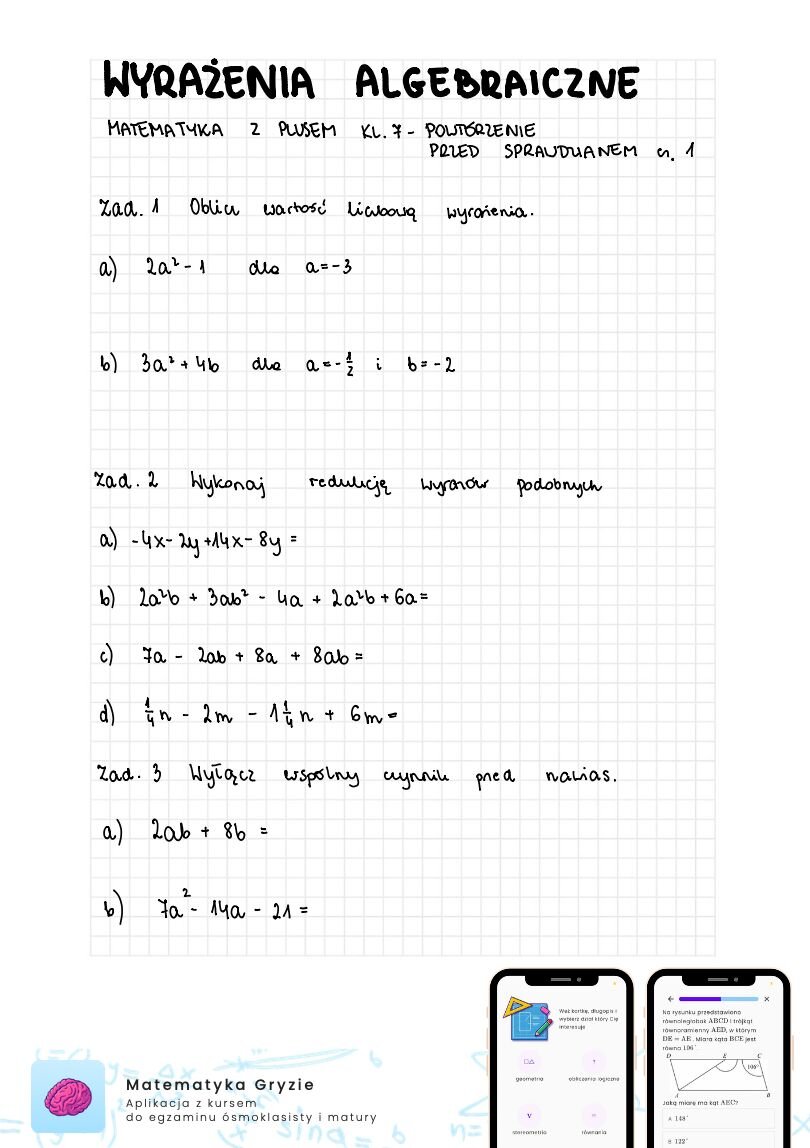 WYRAŻENIA ALGEBRAICZNE
MATEMATYKA Z PLUSEM KL. 7 - POWTÓRZENIE
PRZED SPRAWDZIANEM cz. 1
Zad. 1 Oblicz wartość liczbową wyrażenia.
a) 2a² - 1 dla a = -3
b) 3a² + 4b dla a = -½ i b = -2
Zad. 2 Wykonaj redukcję wyrazów podobnych
a) -4x - 2y + 14x - 8y =
b) 2a²b + 3ab² - 4a + 2a²b + 6a =
c) 7a - 2ab + 8a + 8ab =
d) ¼n - 2m - 1¼n + 6m =
Zad. 3 Wyłącz wspólny czynnik przed nawias.
a) 2ab + 8b =
b) 7a² - 14a - 21 =
Matematyka Gryzie
Aplikacja z kursem
do egzaminu ósmoklasisty i matury
Weź kartkę, długopis i
wybierz dział który Cię
interesuje
geometria
obliczenia logiczne
stereometria
równania
Na rysunku przedstawiono
równoległobok ABCD i trójkąt
równoramienny AED, w którym
DE = AE. Miara kąta BCE jest
równa 106°
D E C
106°
A B
Jaką miarę ma kąt AEC?
A 148°
B 122°